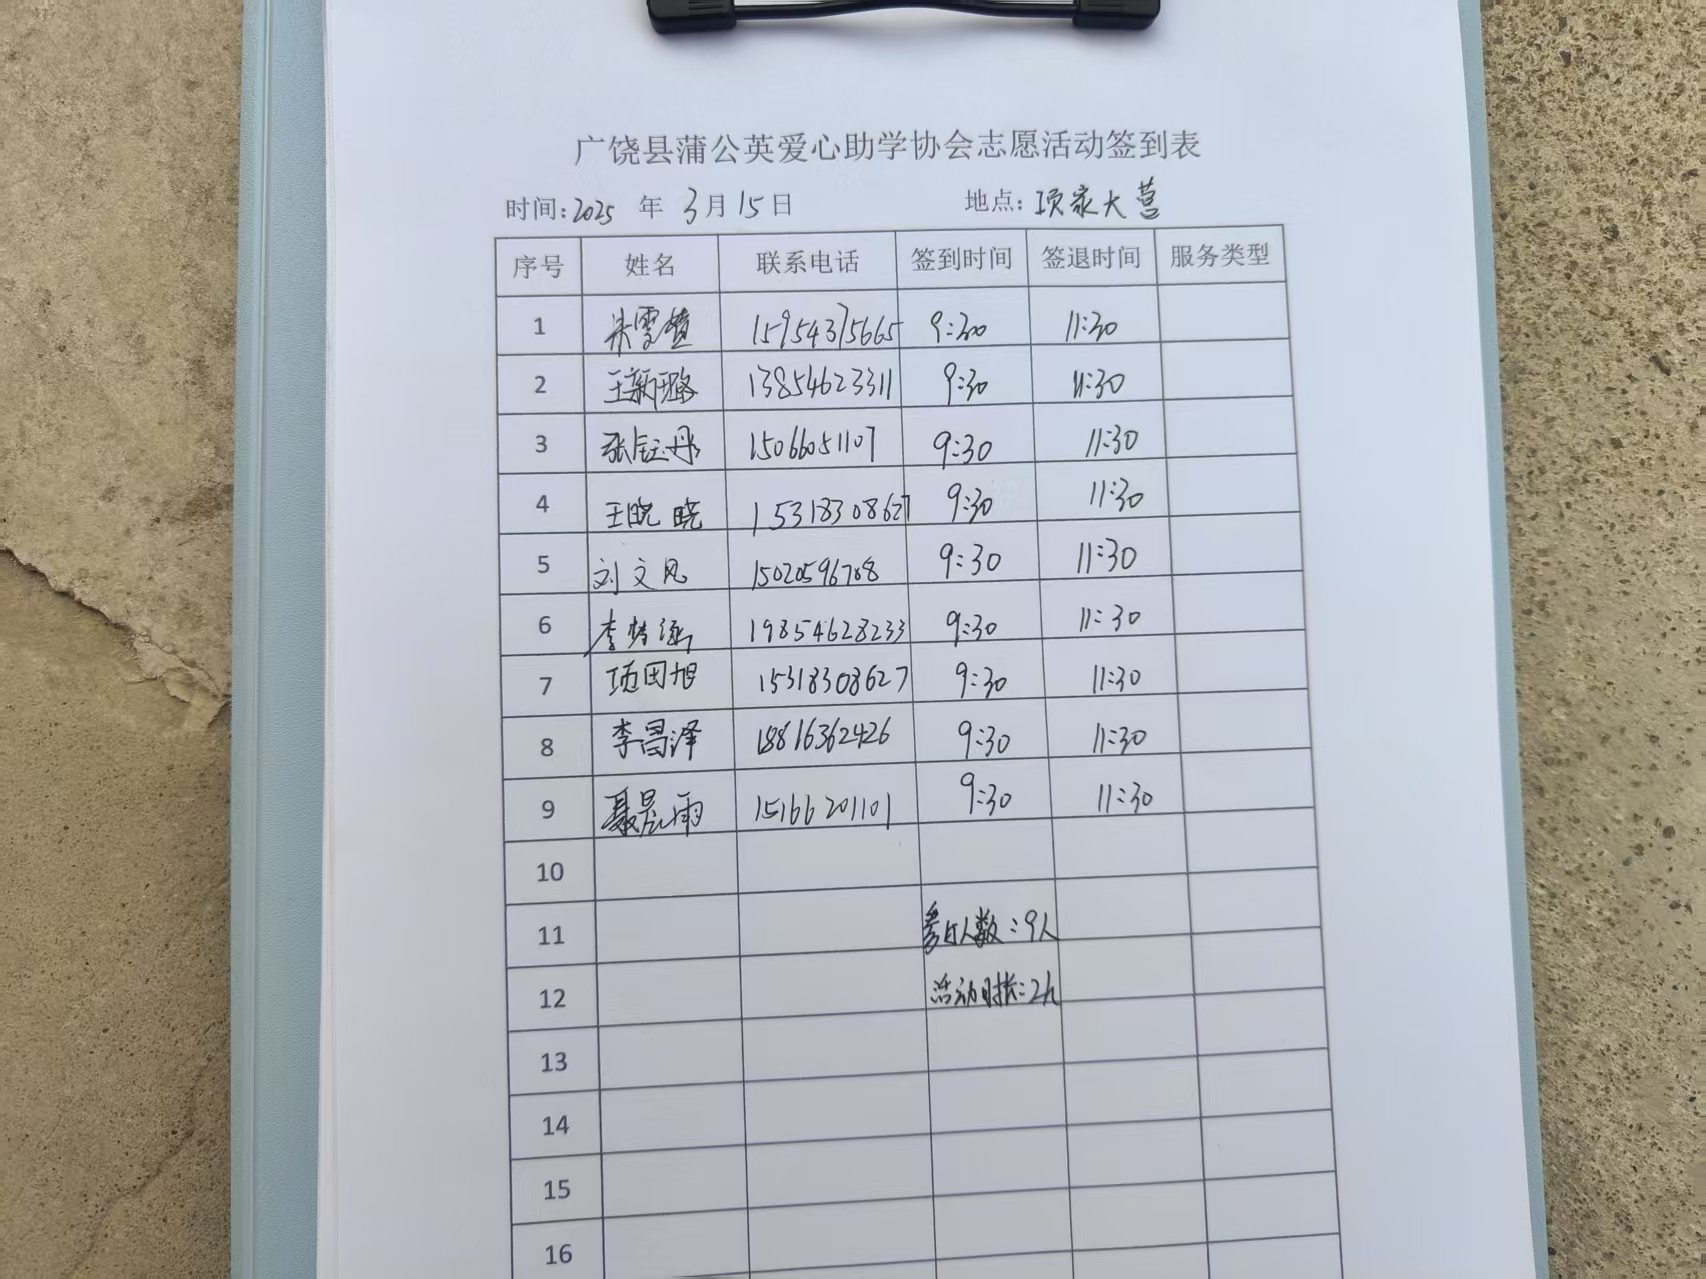 广饶县蒲公英爱心助学协会志愿活动签到表
时间:2025 年 3月15日 地点:项家大营
序号 姓名 联系电话 签到时间 签退时间 服务类型
1 15954375665 9:30 11:30
2 王新璐 13854623311 9:30 11:30
3 张钰丹 15066051107 9:30 11:30
4 王晓晓 15318308627 9:30 11:30
5 刘文凤 15020596708 9:30 11:30
6 李梦涵 19854628233 9:30 11:30
7 项田旭 15318308627 9:30 11:30
8 李昌泽 18816362426 9:30 11:30
9 聂晨雨 15166201101 9:30 11:30
10
11 参与人数:9人
12 活动时长:2h
13
14
15
16